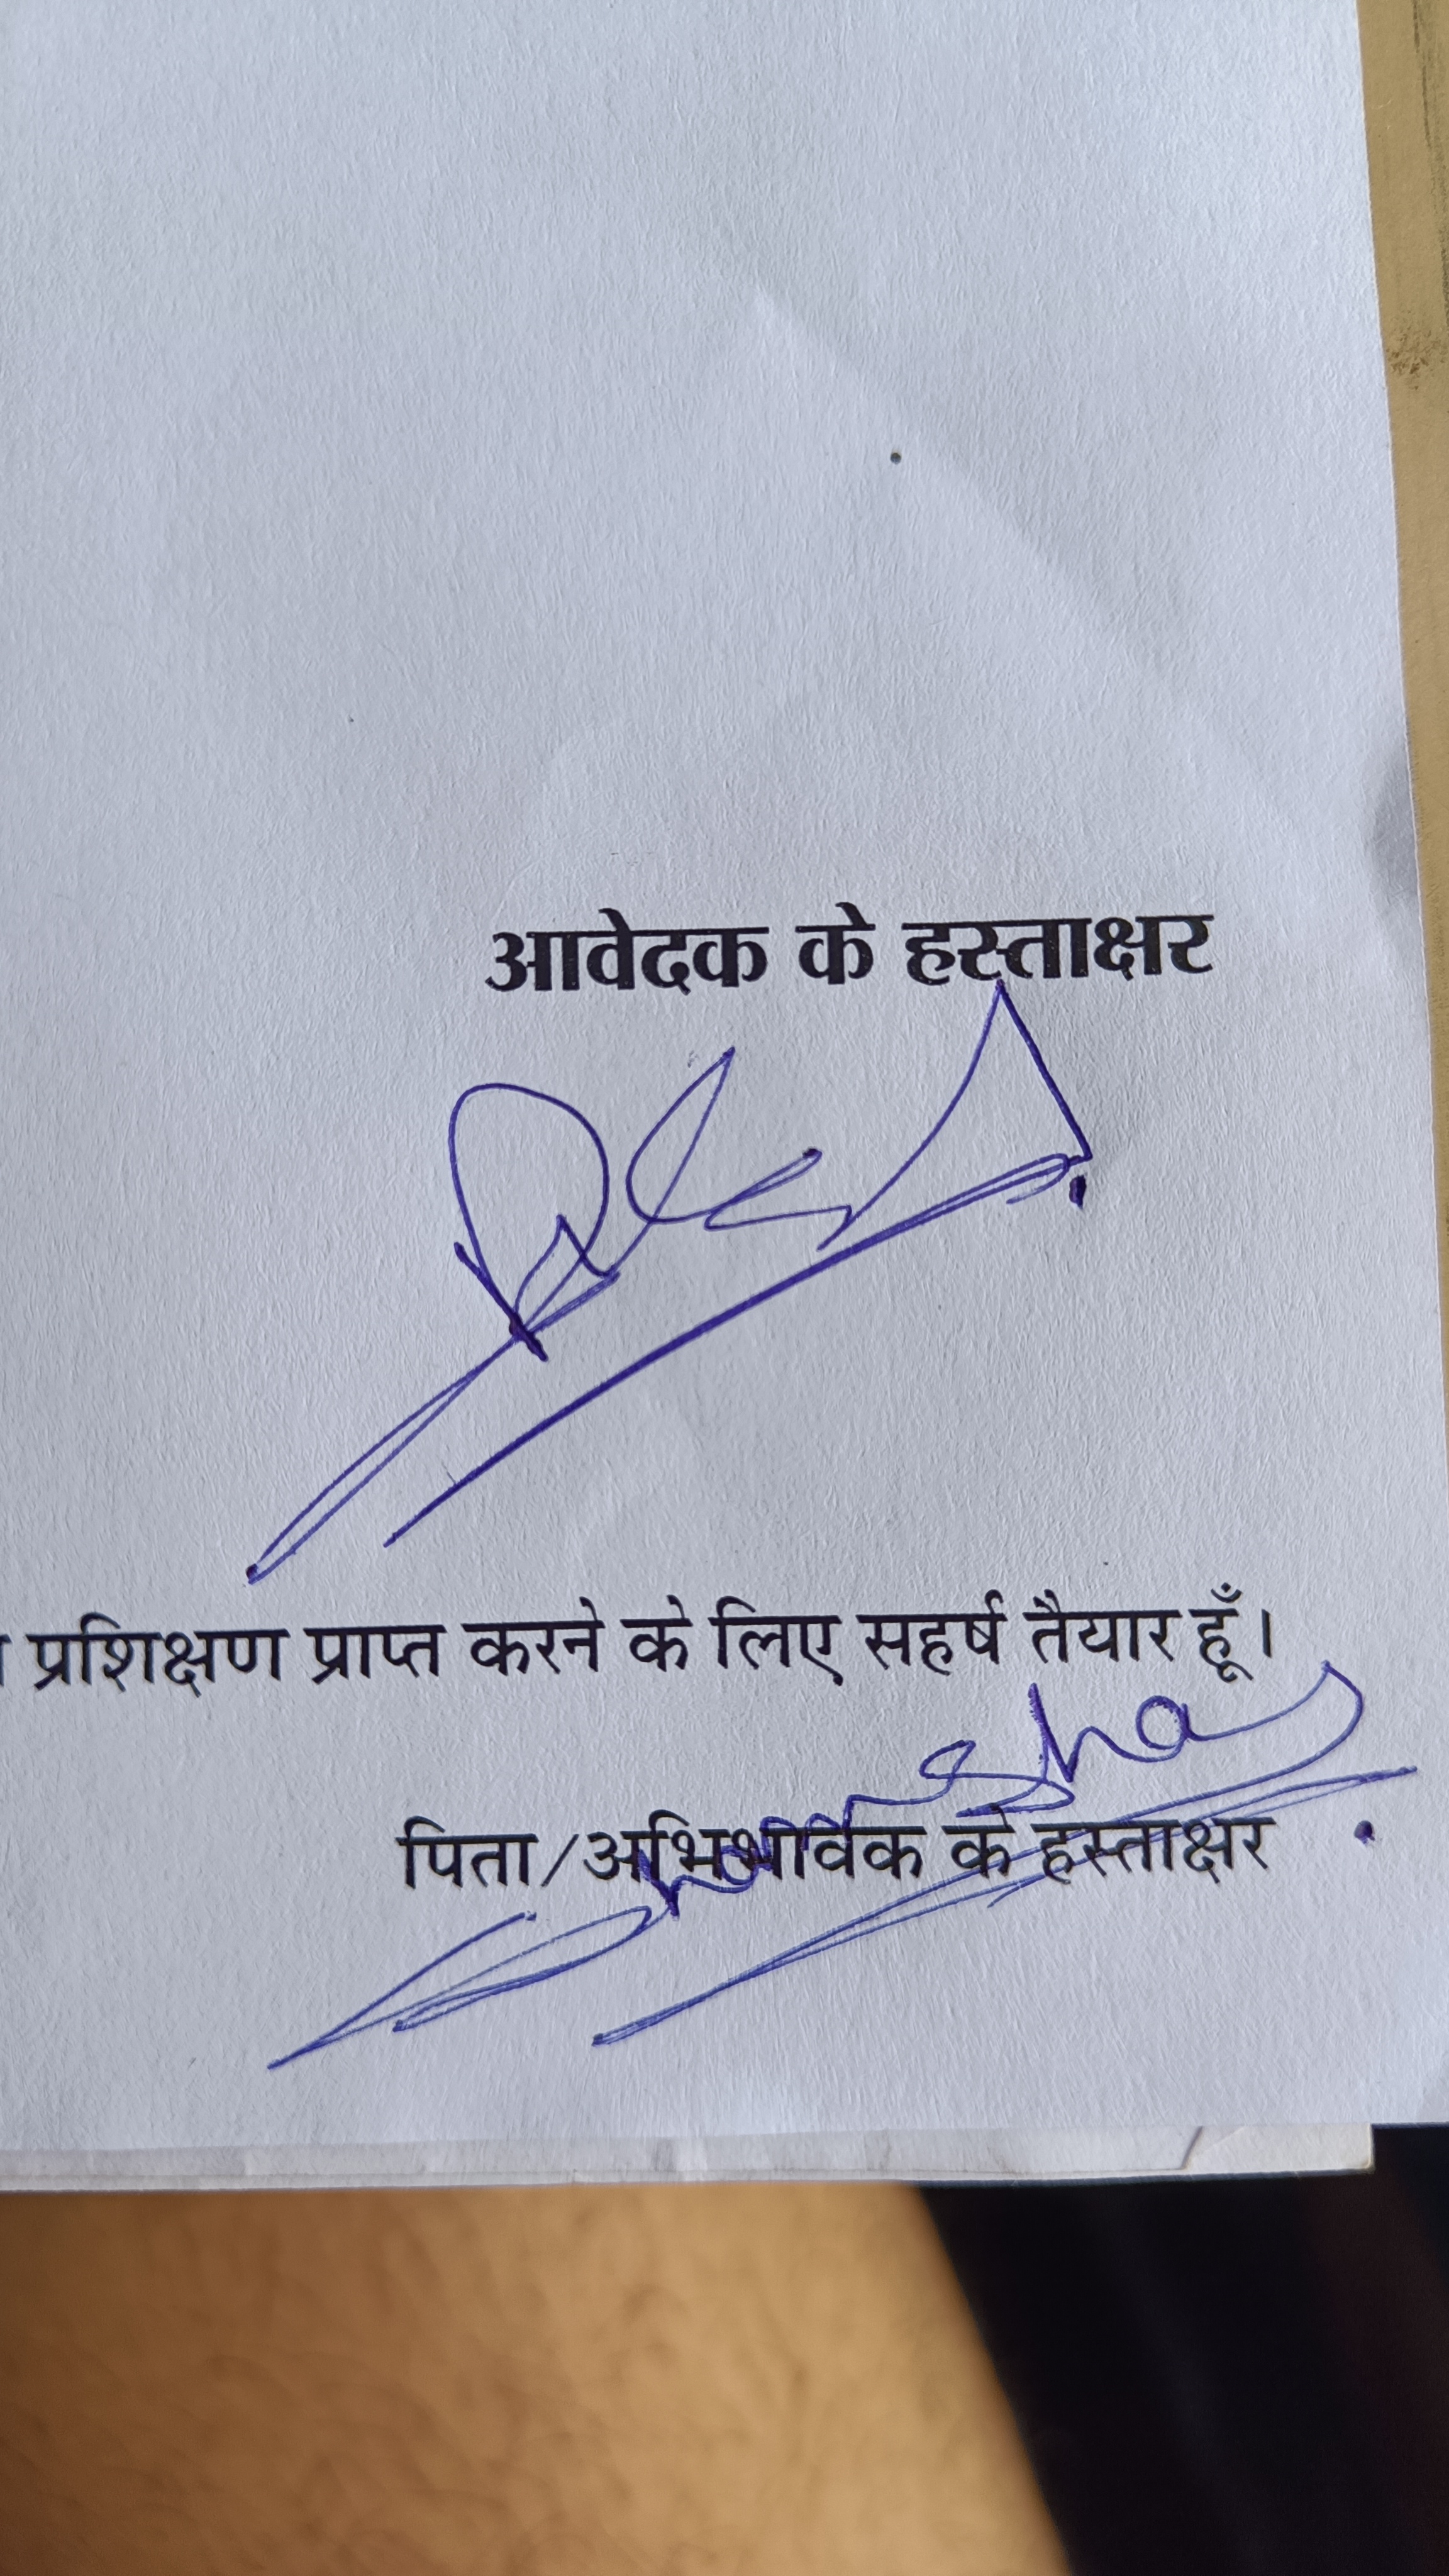 आवेदक के हस्ताक्षर
प्रशिक्षण प्राप्त करने के लिए सहर्ष तैयार हूँ।
पिता/अभिभावक के हस्ताक्षर